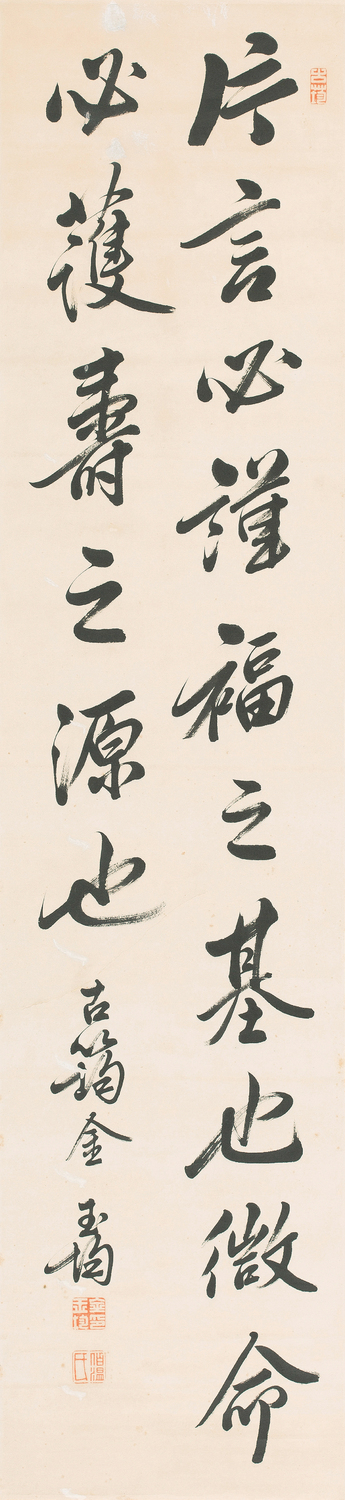 片言必謹福之基也微命
必護壽之源也 古筠金玉均
伯溫氏